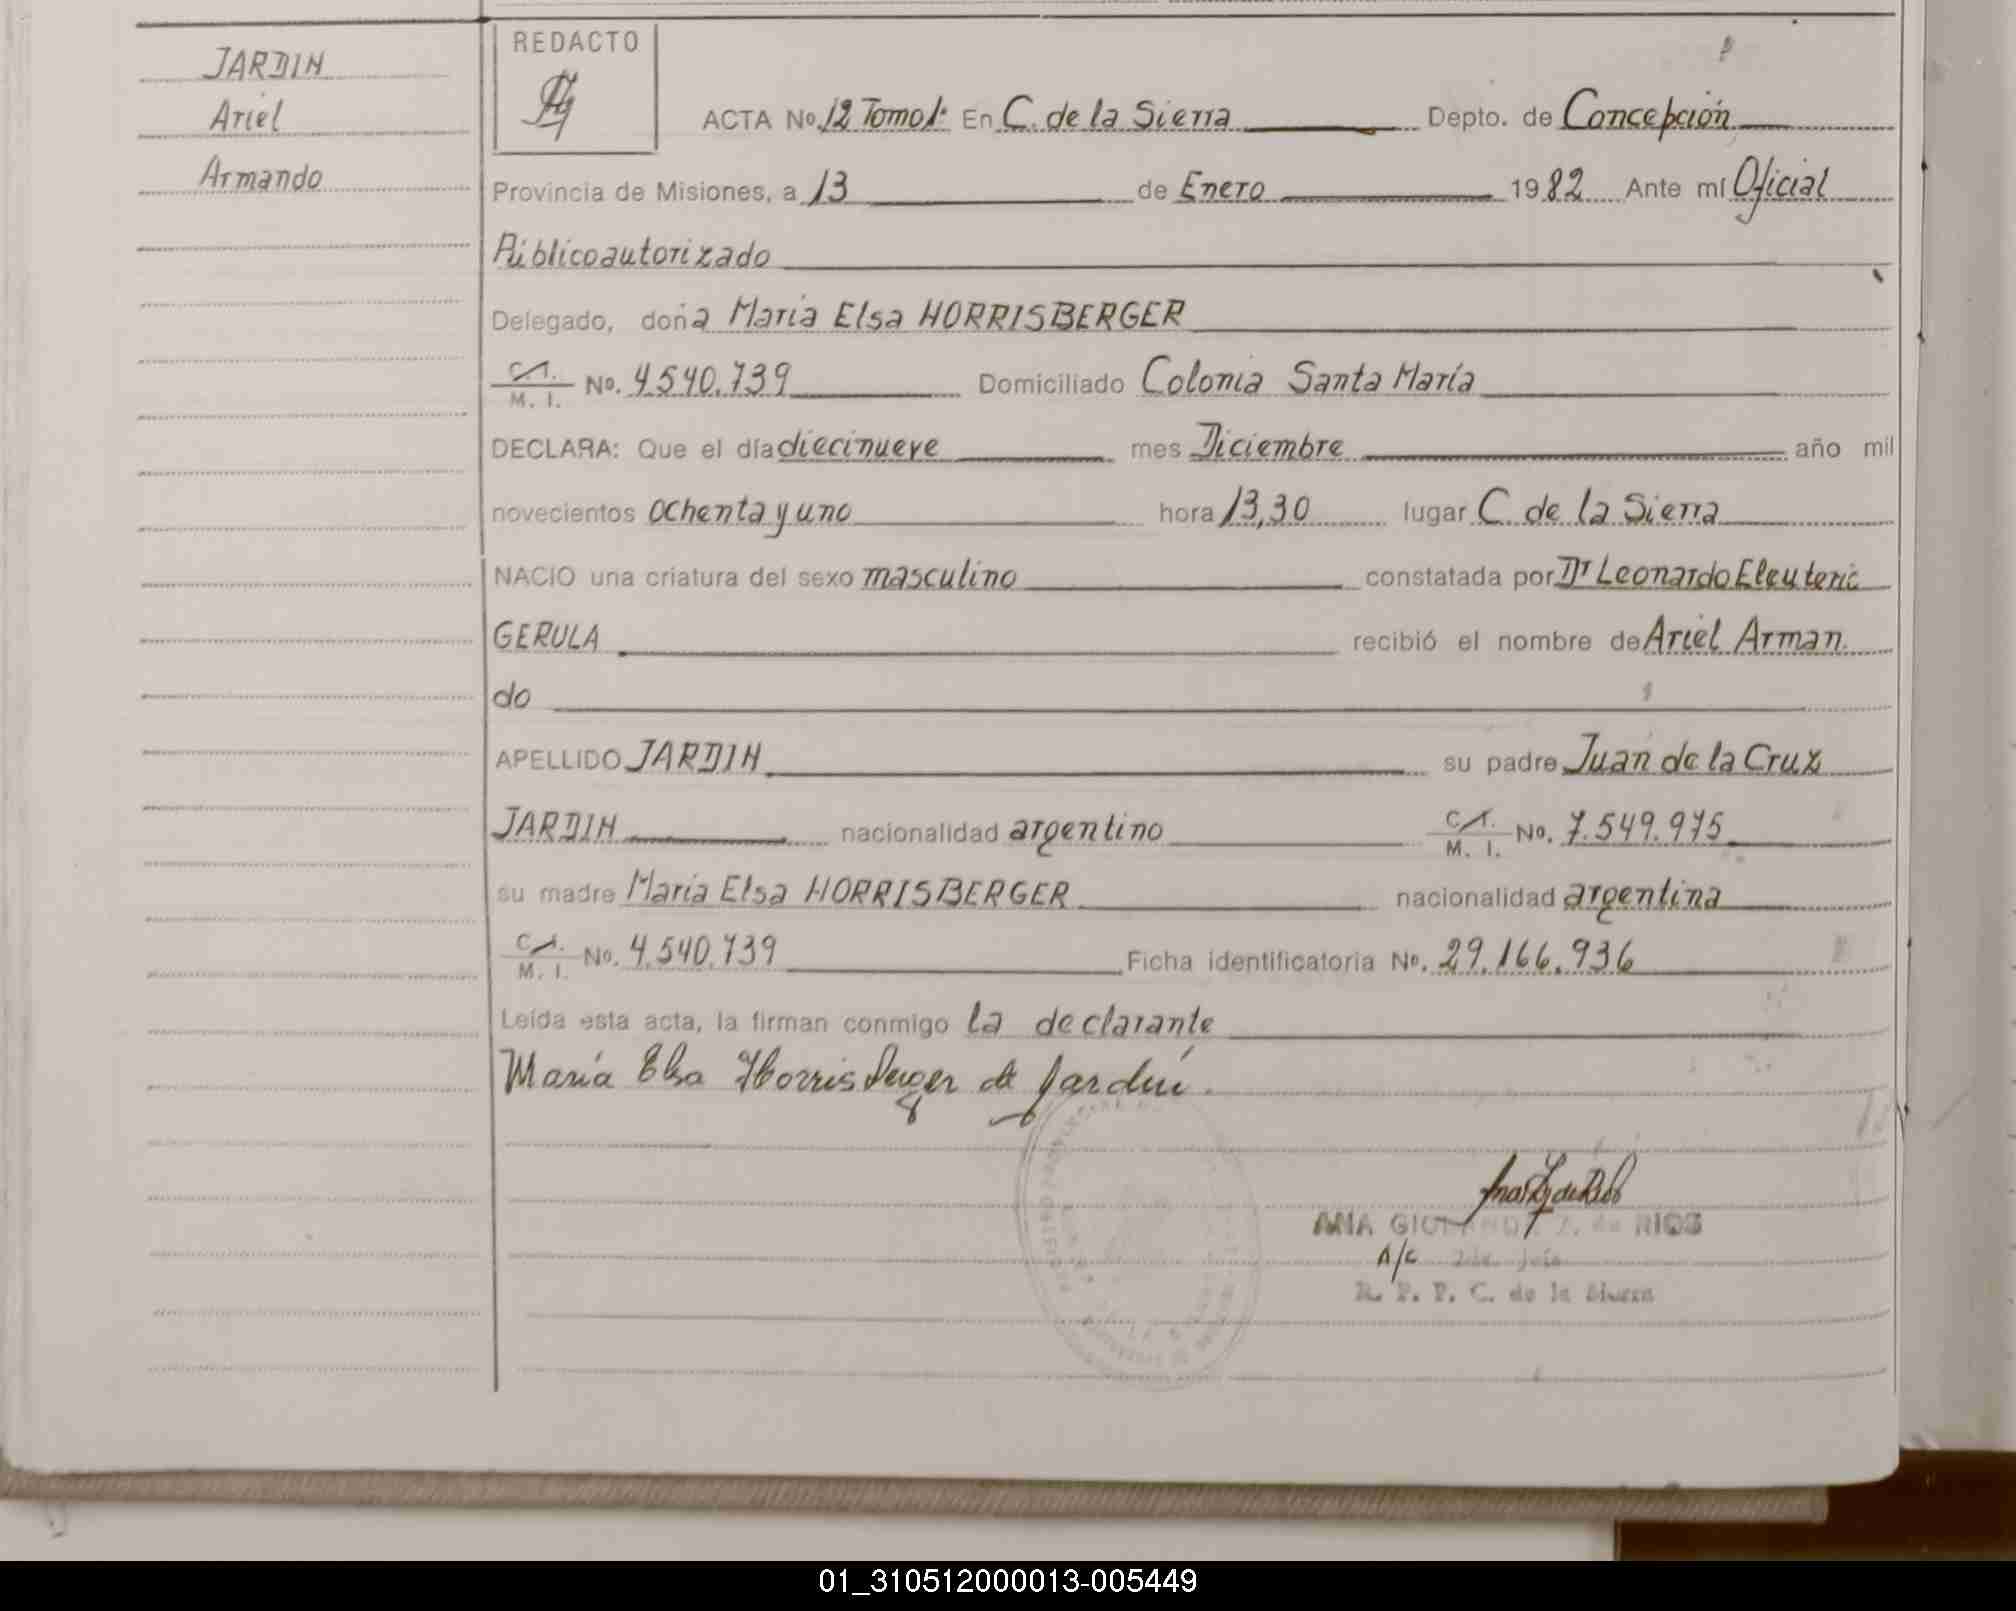 JARDIN
Ariel
Armando
REDACTO
ACTA No. 12 Tomo 1: En C. de la Sierra Depto. de Concepción
Provincia de Misiones, a 13 de Enero 1982 Ante mí Oficial
Público autorizado
Delegado, doña María Elsa HORRISBERGER
C.I. M. I. No. 4.540.739 Domiciliado Colonia Santa María
DECLARA: Que el día diecinueve mes Diciembre año mil
novecientos ochenta y uno hora 13,30 lugar C. de la Sierra
NACIO una criatura del sexo masculino constatada por Dr Leonardo Eleuterio
GERULA recibió el nombre de Ariel Arman
do
APELLIDO JARDIN su padre Juan de la Cruz
JARDIN nacionalidad argentino C.I. M. I. No. 7.549.975
su madre María Elsa HORRISBERGER nacionalidad argentina
C.I. M. I. No. 4.540.739 Ficha identificatoria No. 29.166.936
Leída esta acta, la firman conmigo la declarante
María Elsa Horrisberger de Jardín.
ANA de RIOS
A/c
R. P. P. C. de la Sierra
01_310512000013-005449